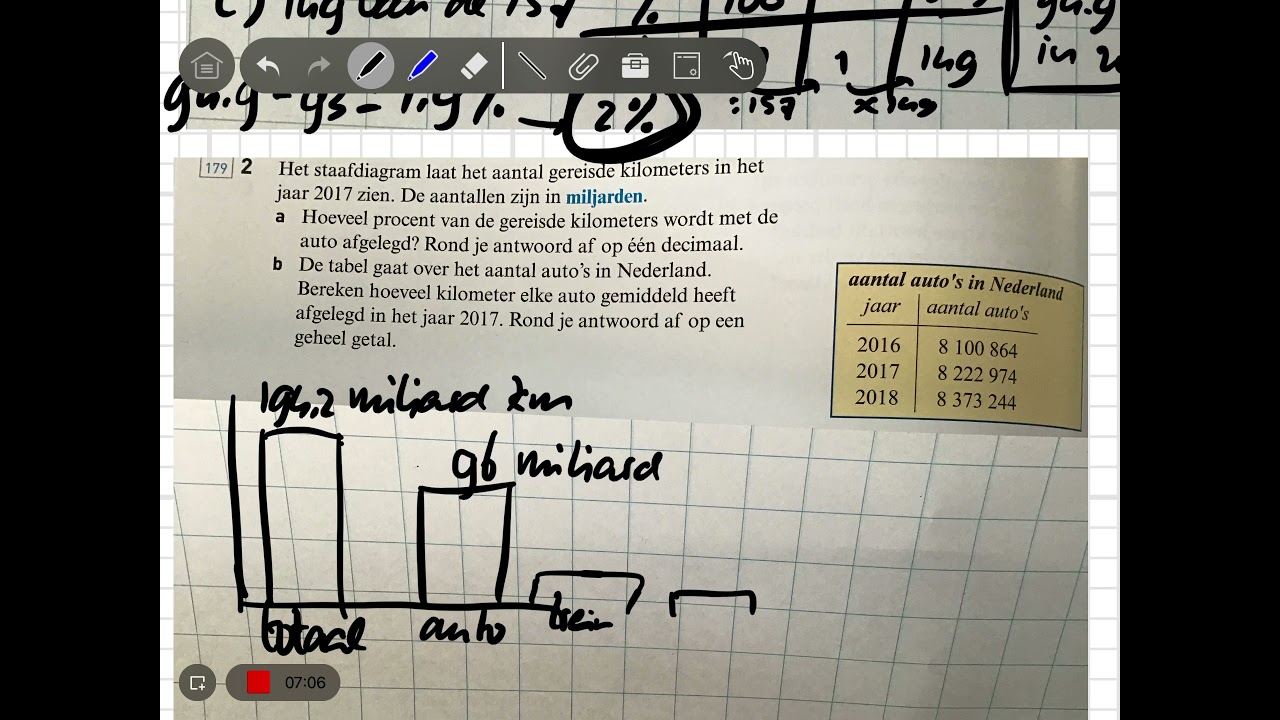 c) 149 van de 157
% 100
1 149
94.9
in
94.9 - 93 = 1.9% → 2%
: 157 x 149
179 2 Het staafdiagram laat het aantal gereisde kilometers in het
jaar 2017 zien. De aantallen zijn in miljarden.
a Hoeveel procent van de gereisde kilometers wordt met de
auto afgelegd? Rond je antwoord af op één decimaal.
b De tabel gaat over het aantal auto's in Nederland.
Bereken hoeveel kilometer elke auto gemiddeld heeft
afgelegd in het jaar 2017. Rond je antwoord af op een
geheel getal.
aantal auto's in Nederland
jaar aantal auto's
2016 8 100 864
2017 8 222 974
2018 8 373 244
194,2 miliard km
96 miliard
totaal auto trein
07:06